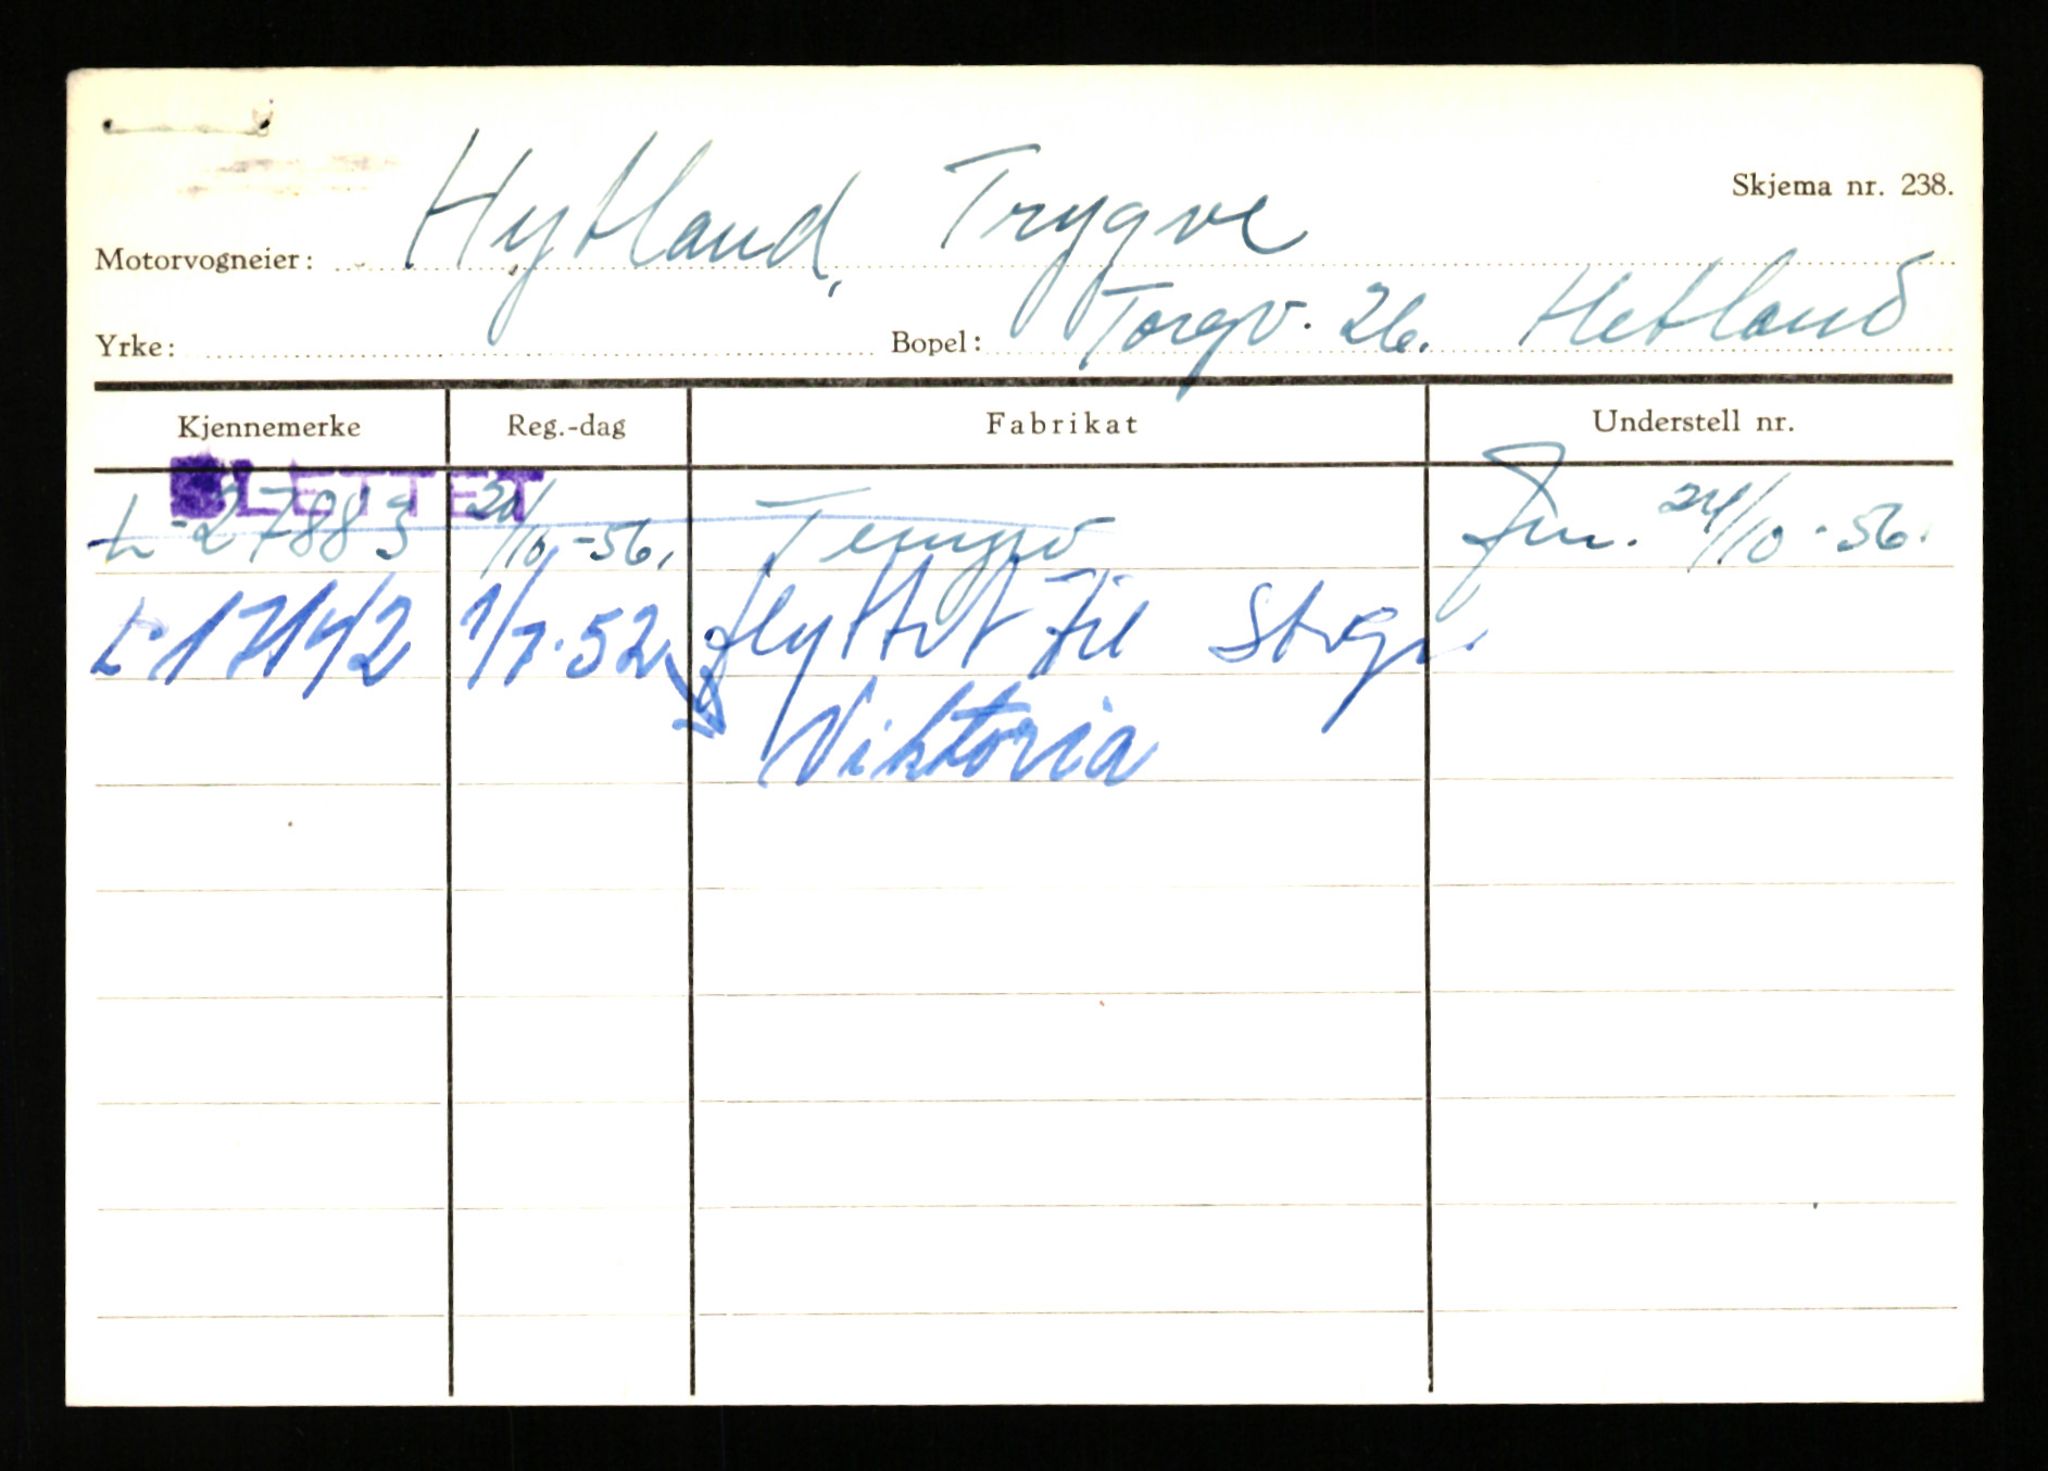 Skjema nr. 238.
Motorvogneier: Hytland, Trygve
Yrke: Bopel: Torgv. 26. Hetland
Kjennemerke Reg.-dag Fabrikat Understell nr.
SLETTET
L-27883 20/10-56. Tempo 24/10-56.
L-17142 1/7-52 flyttet til Stvgr.
Viktoria